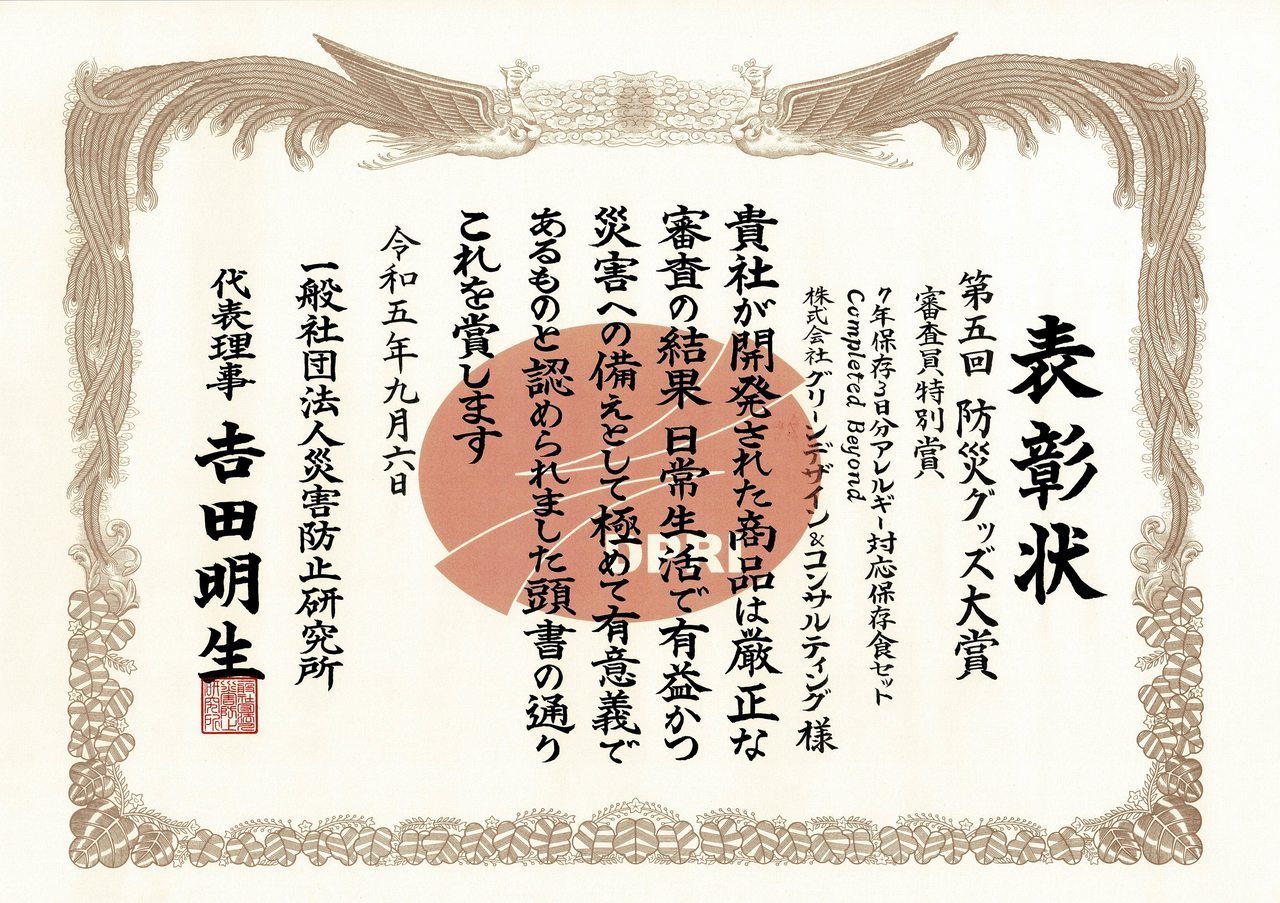 表彰状
第五回 防災グッズ大賞
審査員特別賞
7年保存3日分アレルギー対応保存食セット
Completed Beyond
株式会社グリーンデザイン&コンサルティング 様
貴社が開発された商品は厳正な
審査の結果 日常生活で有益かつ
災害への備えとして極めて有意義で
あるものと認められました頭書の通り
これを賞します
令和五年九月六日
一般社団法人災害防止研究所
代表理事 𠮷田明生
DPRI